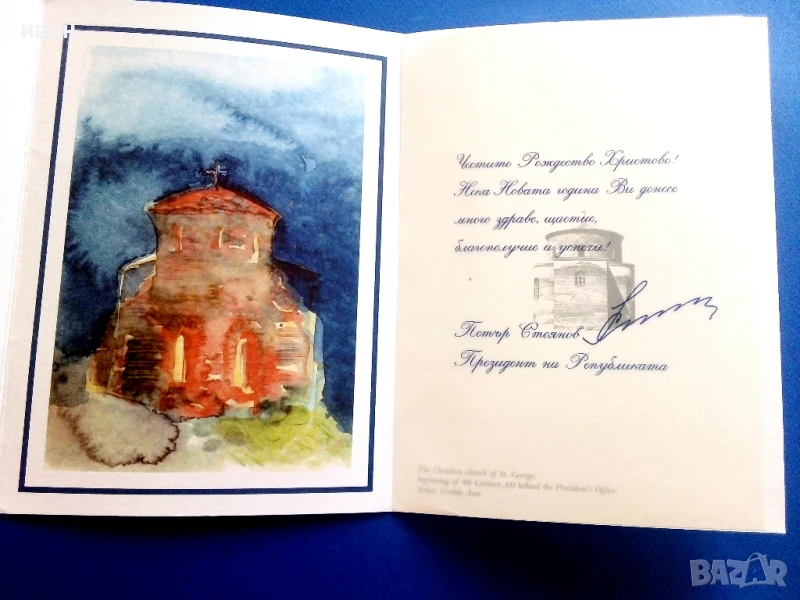 ИВАН
Честито Рождество Христово!
Нека Новата година Ви донесе
много здраве, щастие,
благополучие и успехи!
Петър Стоянов
Президент на Републиката
The Christian church of St. George,
beginning of 4th Century AD behind the President's Office
BAZAR